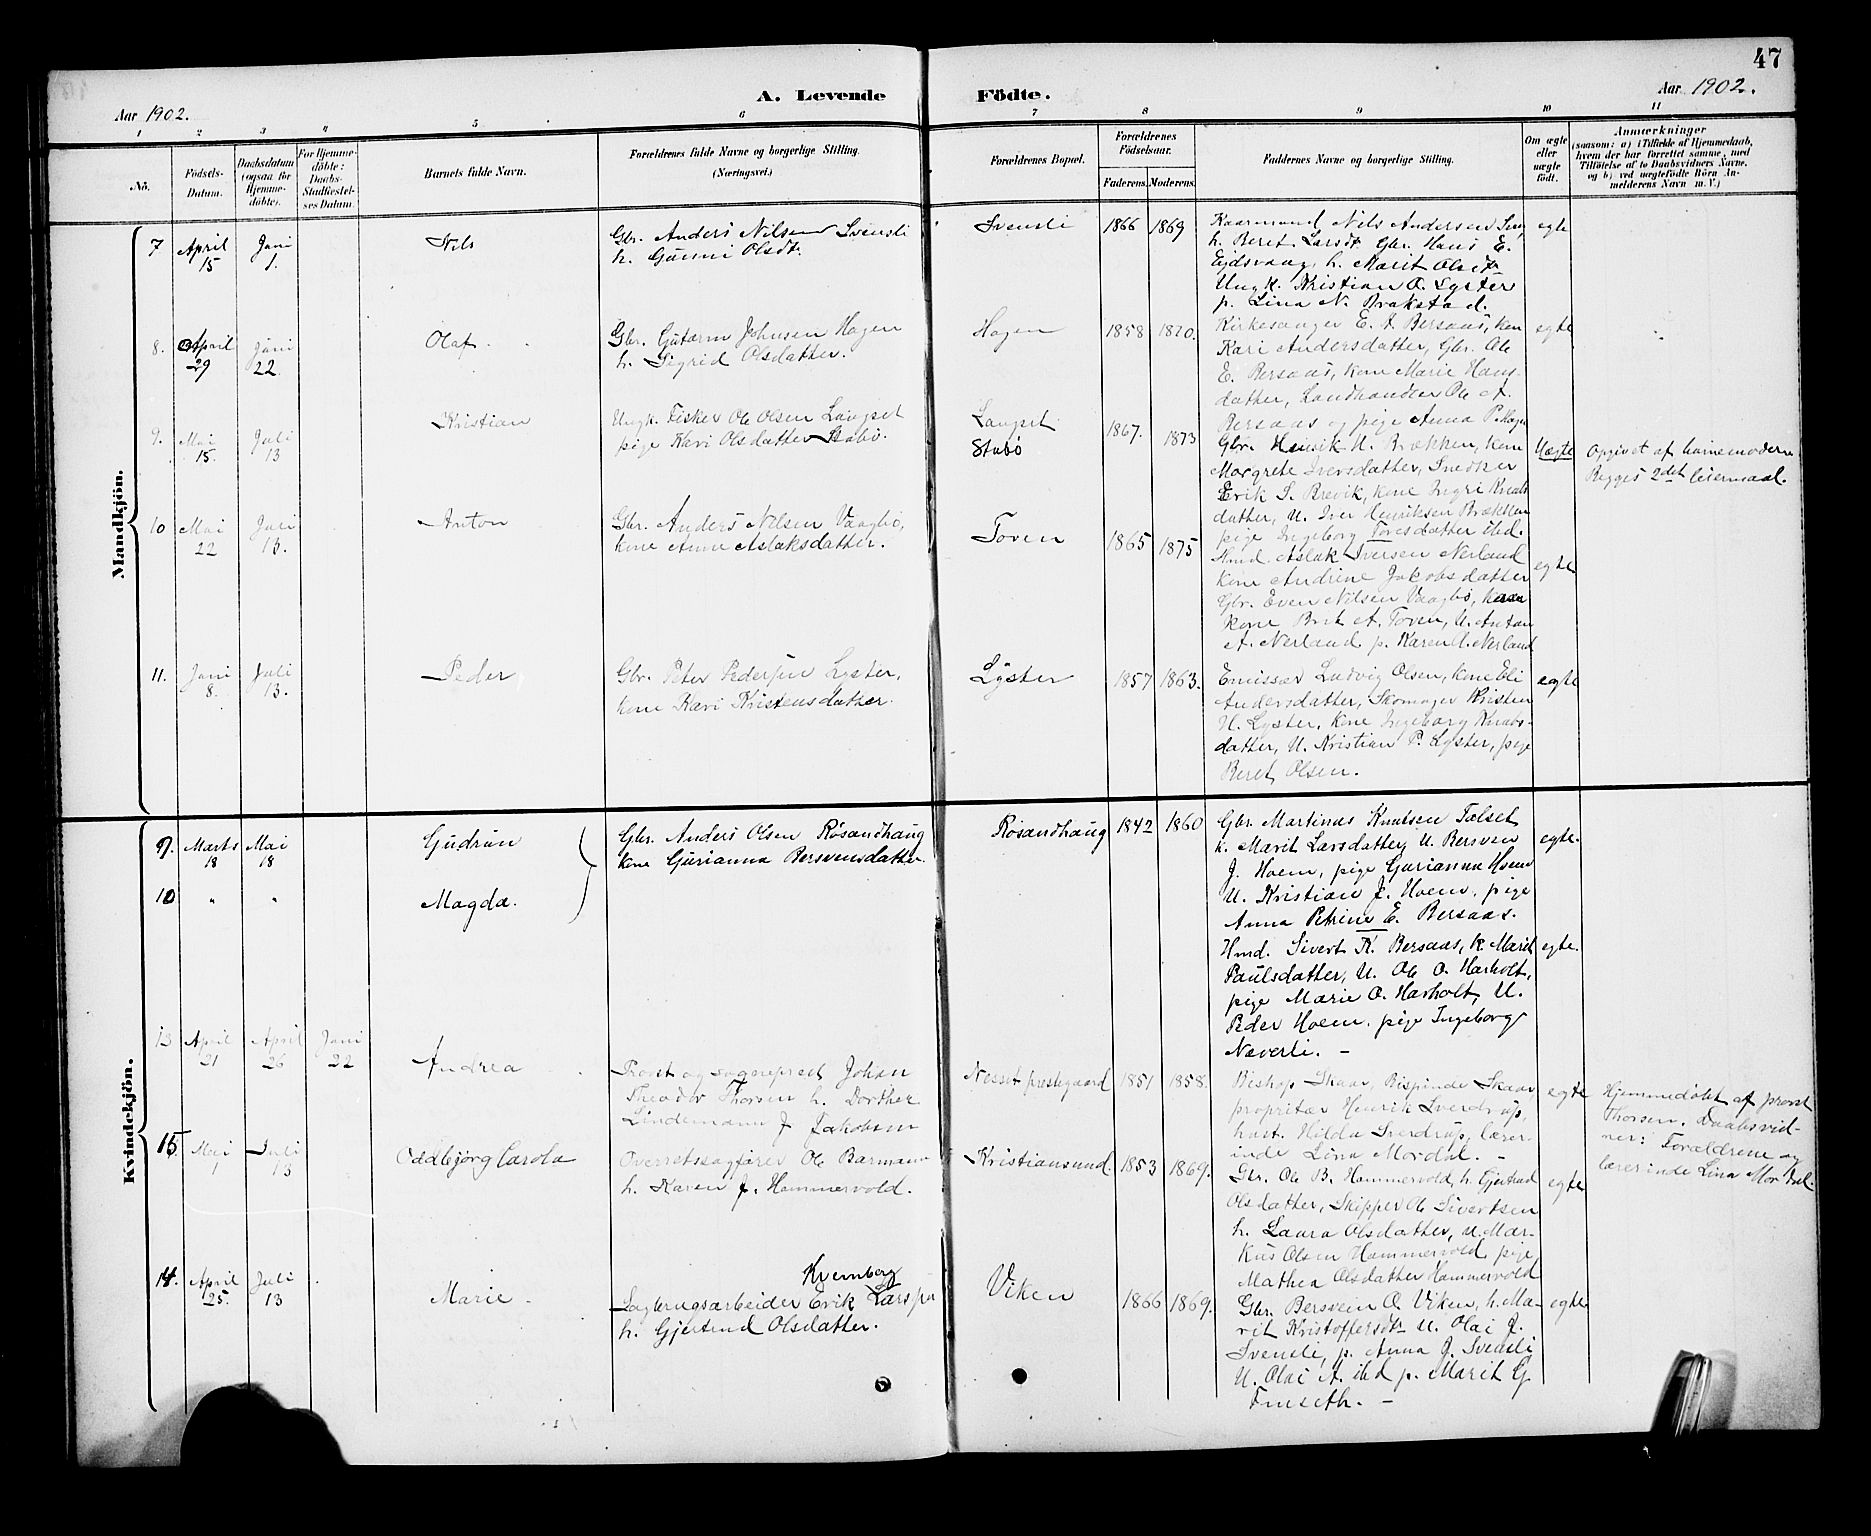 47
Aar 1902.
A. Levende Födte.
Aar 1902.
1 2 3 4 5 6 7 8 9 10 11
No.
Födsels-
Datum.
Daabsdatum
(ogsaa for
Hjemme-
döbte).
For Hjemme-
döbte:
Daabs-
Stadfæstel-
ses Datum.
Barnets fulde Navn.
Forældrenes fulde Navne og borgerlige Stilling.
(Næringsvei.)
Forældrenes Bopæl.
Forældrenes
Födselsaar.
Faderens. Moderens.
Faddernes Navne og borgerlige Stilling.
Om ægte
eller
uægte
födt.
Anmærkninger
(saasom: a) i Tilfælde af Hjemmedaab,
hvem der har forrettet samme, med
Tilföielse af to Daabsvidners Navne,
og b) ved uægtefödte Börn An-
melderens Navn m. V.)
Mandkjön.
7 April 15 Juni 1. Nils
Gbr. Anders Nilsen Svensli
h. Gunni Olsdt.
Svensli 1866 1869
Kaarmand Nils Andersen
h. Beret Larsdt. Gbr. Hans E.
Eidsvaag, h. Marit Olsdtr
Ungk. Kristian O. Lyster
p. Lina N. Brakstad.
egte
8. April 29 Juni 22. Olaf
Gbr. Gutorm Johnsen Hagen
h. Sigrid Olsdatter.
Hagen 1858 1820.
Kirkesanger E. A. Bersaas, kone
Kari Andersdatter, Gbr. Ole
E. Bersaas, kone Marie Hans-
datter, Landhandler Ole A.
Bersaas og pige Anna P.
egte
9. Mai 15. Juli 13 Kristian
Ungk. Fisker Ole Olsen Langset
pige Kari Olsdatter Stabö.
Langset
Stubö
1867. 1873
Gbr. Henrik U. Brækken, kone
Margrete Iversdatter, Snedker
Erik S. Brevik, kone Ingri Knuds
datter, U. Iver Henriksen Brækken
pige Ingeborg Toresdatter ibid.
Uægte
Opgivet af barnemoderen
Begges 2det leiermaal.
10 Mai 22 Juli 13. Anton
Gbr. Anders Nilsen Vaagbö,
kone Anne Aslaksdatter.
Toven 1865 1875
Hmd. Aslak Iversen Nerland
kone Andrine Jakobsdatter
Gbr. Even Nilsen Vaagbö,
kone Brit A. Toven, U. Anton
A. Nerland p. Karen A. Nerland
egte
11. Juni 8. Juli 13. Peder
Gbr. Peter Pedersen Lyster,
kone Kari Kristensdatter.
Lyster 1857 1863.
Emissær Ludvig Olsen, kone Eli
Andersdatter, Skomager Kristen
U. Lyster, kone Ingeborg Knuds-
datter, U. Kristian P. Lyster, pige
Beret Olsen.
egte
Kvindekjön.
9. Marts 18 Mai 18 Gudrun
Gbr. Anders Olsen Rösandhaug
kone Gurianna Bersvensdatter.
Rösandhaug 1842 1860
Gbr. Martinus Knutsen Talset
k. Marit Larsdatter, U. Bersven
J. Hoem, pige Gurianna Hoem
U. Kristian J. Hoem, pige
Anna Petrine E. Bersaas.
egte.
10 " " Magda.
Hmd. Sivert K. Bersaas, k. Marit
Paulsdatter, U. Ole O. Harholt,
pige Marie O. Harholt, U.
Peder Hoem, pige Ingeborg
Næverli. –
egte.
13 April 21 April 26 Juni 22 Andrea
Provst og sogneprest Johan
Theodor Thorsen h. Dorthea
Lindemann f. Jakobsen
Nesset prestegaard 1851 1858.
Biskop Skaar, Bispinde Skaar
propritær Henrik Sverdrup,
hust. Hilda Sverdrup, lærer-
inde Lina Mordal. –
egte
Hjemmedöbt af provst
Thorsen. Daabsvid-
ner: Forældrene og
lærerinde Lina Mordal.
15. Mai 1 Juli 13 Oddbjörg Carola
Overretssagförer Ole Barmann
h. Karen f. Hammervold.
Kristiansund. 1853 1869.
Gbr. Ole B. Hammervold, h. Gjertrud
Olsdatter, Skipper Ole Sivertsen
h. Laura Olsdatter, U. Mar-
kus Olsen Hammervold, pige
Mathea Olsdatter Hammervold
egte
14. April 25. Juli 13 Marie
Kvernberg
Sagbrugsarbeider Erik Larsen
h. Gjertrud Olsdatter.
Viken 1866 1869.
Gbr. Bersvein O. Viken, h. Ma-
rit Kristoffersdtr U. Olai J.
Svensli, p. Anna J. Svensli
U. Olai A. ibid p. Marit G.
Finseth. –
egte